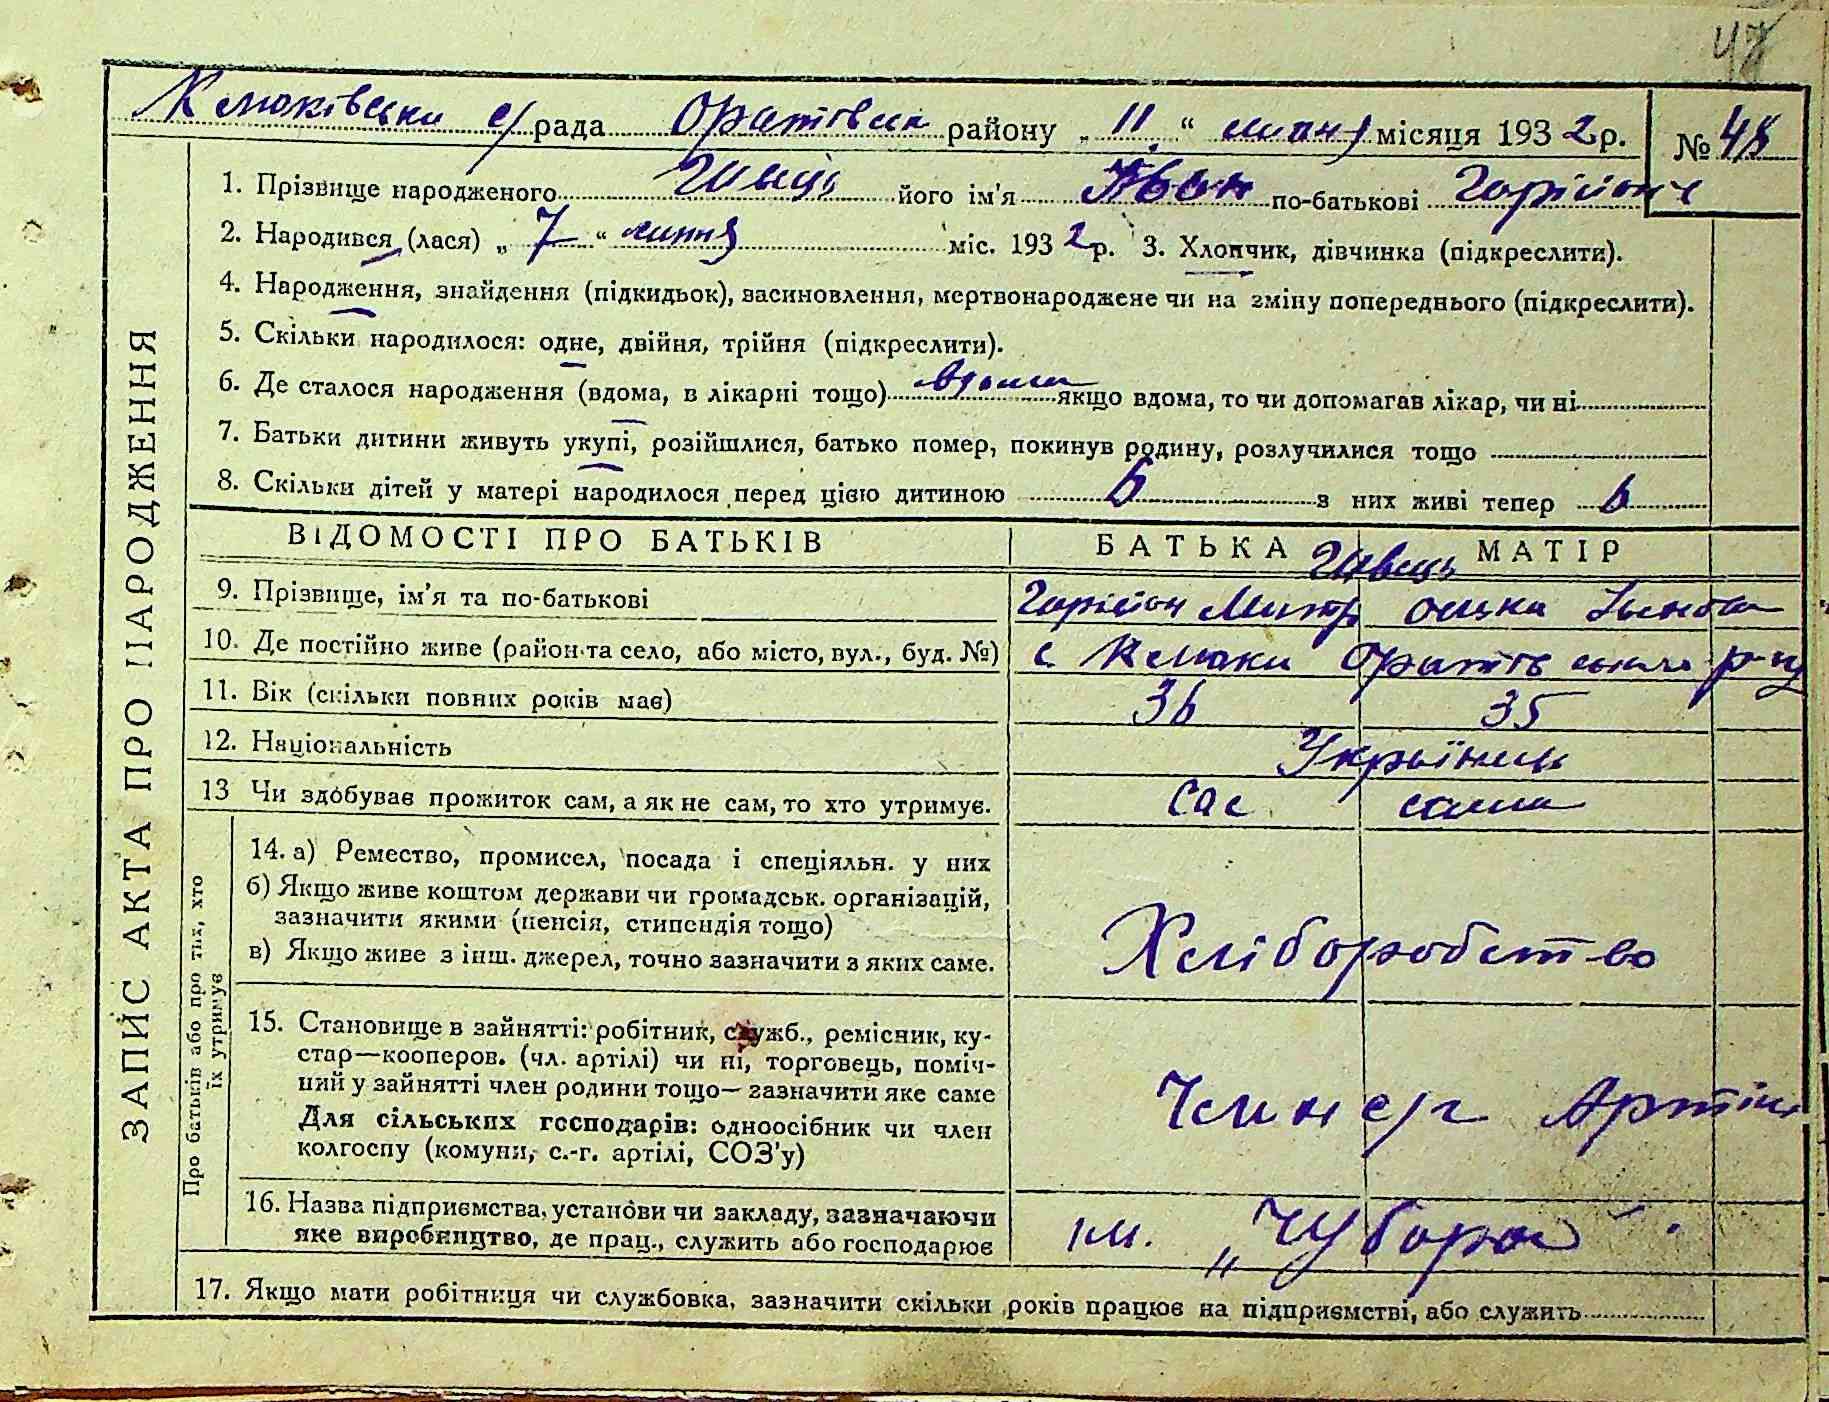 47
Клюківська с/рада Оратівськ району „ 11 “ липня місяця 1932 р. № 48
ЗАПИС АКТА ПРО НАРОДЖЕННЯ
1. Прізвище народженого Швець його ім'я Іван по-батькові
2. Народився (лася) „ 7 “ липня міс. 1932 р. 3. Хлопчик, дівчинка (підкреслити).
4. Народження, знайдення (підкидьок), васиновлення, мертвонароджене чи на зміну попереднього (підкреслити).
5. Скільки народилося: одне, двійня, трійня (підкреслити).
6. Де сталося народження (вдома, в лікарні тощо) вдома якщо вдома, то чи допомагав лікар, чи ні
7. Батьки дитини живуть укупі, розійшлися, батько помер, покинув родину, розлучилися тощо
8. Скільки дітей у матері народилося перед цією дитиною 6 з них живі тепер 6
ВІДОМОСТІ ПРО БАТЬКІВ БАТЬКА МАТІР
Швець
9. Прізвище, ім'я та по-батькові
10. Де постійно живе (район та село, або місто, вул., буд. №) с Клюки Оратівського р-ну
11. Вік (скільки повних років має) 36 35
12. Національність Українець
13 Чи здобуває прожиток сам, а як не сам, то хто утримує. сам сама
Про батьків або про тих, хто їх утримує
14. а) Ремество, промисел, посада і спеціяльн. у них
б) Якщо живе коштом держави чи громадськ. організацій,
зазначити якими (пенсія, стипендія тощо)
в) Якщо живе з інш. джерел, точно зазначити з яких саме.
Хліборобство
15. Становище в зайнятті: робітник, служб., ремісник, ку-
стар—кооперов. (чл. артілі) чи ні, торговець, поміч-
ний у зайнятті член родини тощо— зазначити яке саме
Для сільських господарів: одноосібник чи член
колгоспу (комуни, с.-г. артілі, СОЗ'у)
Член с/г Артіли
16. Назва підприємства, установи чи закладу, зазначаючи
яке виробництво, де прац., служить або господарює
ім. „Чубаря“
17. Якщо мати робітниця чи службовка, зазначити скільки років працює на підприємстві, або служить